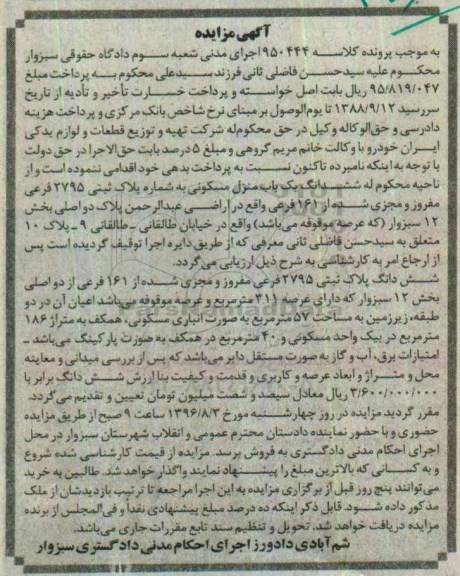 آگهی مزایده
به موجب پرونده کلاسه ۹۵۰۴۴۴ اجرای مدنی شعبه سوم دادگاه حقوقی سبزوار
محکوم علیه سیدحسن فاضلی ثانی فرزند سیدعلی محکوم به پرداخت مبلغ
۹۵/۸۱۹/۰۴۷ ریال بابت اصل خواسته و پرداخت خسارت تأخیر و تأدیه از تاریخ
سررسید ۱۳۸۸/۹/۱۲ تا یوم‌الوصول بر مبنای نرخ شاخص بانک مرکزی و پرداخت هزینه
دادرسی و حق‌الوکاله وکیل در حق محکوم‌له شرکت تهیه و توزیع قطعات و لوازم یدکی
ایران خودرو با وکالت خانم مریم گروهی و مبلغ ۵ درصد بابت حق‌الاجرا در حق دولت
با توجه به اینکه نامبرده تاکنون نسبت به پرداخت بدهی خود اقدامی ننموده است و از
ناحیه محکوم له ششدانگ یک باب منزل مسکونی به شماره پلاک ثبتی ۲۷۹۵ فرعی
مفروز و مجزی شده از ۱۶۱ فرعی واقع در اراضی عبدالرحمن پلاک دو اصلی بخش
۱۲ سبزوار (که عرصه موقوفه می‌باشد) واقع در خیابان طالقانی - طالقانی ۹ - پلاک ۱۰
متعلق به سیدحسن فاضلی ثانی معرفی که از طریق دایره اجرا توقیف گردیده است پس
از ارجاع امر به کارشناسی به شرح ذیل ارزیابی می‌گردد.
شش دانگ پلاک ثبتی ۲۷۹۵ فرعی مفروز و مجزی شده از ۱۶۱ فرعی از دو اصلی
بخش ۱۲ سبزوار که دارای عرصه ۳۱۱ مترمربع و عرصه موقوفه می‌باشد اعیان آن در دو
طبقه، زیرزمین به مساحت ۵۷ مترمربع به صورت انباری مسکونی، همکف به متراژ ۱۸۶
مترمربع در بیک واحد مسکونی و ۴۰ مترمربع در همکف به صورت پارکینگ می‌باشد -
امتیازات برق، آب و گاز به صورت مستقل دایر می‌باشد که پس از بررسی میدانی و معاینه
محل و متراژ و ابعاد عرصه و کاربری و قدمت و کیفیت بنا ارزش شش دانگ برابر با
۳/۶۰۰/۰۰۰/۰۰۰ ریال معادل سیصد و شصت میلیون تومان تعیین و تقدیم می‌گردد.
مقرر گردید مزایده در روز چهارشنبه مورخ ۱۳۹۶/۸/۳ ساعت ۹ صبح از طریق مزایده
حضوری و با حضور نماینده دادستان محترم عمومی و انقلاب شهرستان سبزوار در محل
اجرای احکام مدنی دادگستری به فروش برسد. مزایده از قیمت کارشناسی شده شروع
و به کسانی که بالاترین مبلغ را پیشنهاد نمایند واگذار خواهد شد. طالبین به خرید
می‌توانند پنج روز قبل از برگزاری مزایده به این اجرا مراجعه تا ترتیب بازدیدشان از ملک
مذکور داده شود. قابل ذکر اینکه ده درصد مبلغ پیشنهادی نقداً و فی‌المجلس از برنده
مزایده دریافت خواهد شد. تحویل و تنظیم سند تابع مقررات جاری می‌باشد.
شم‌آبادی دادورز اجرای احکام مدنی دادگستری سبزوار